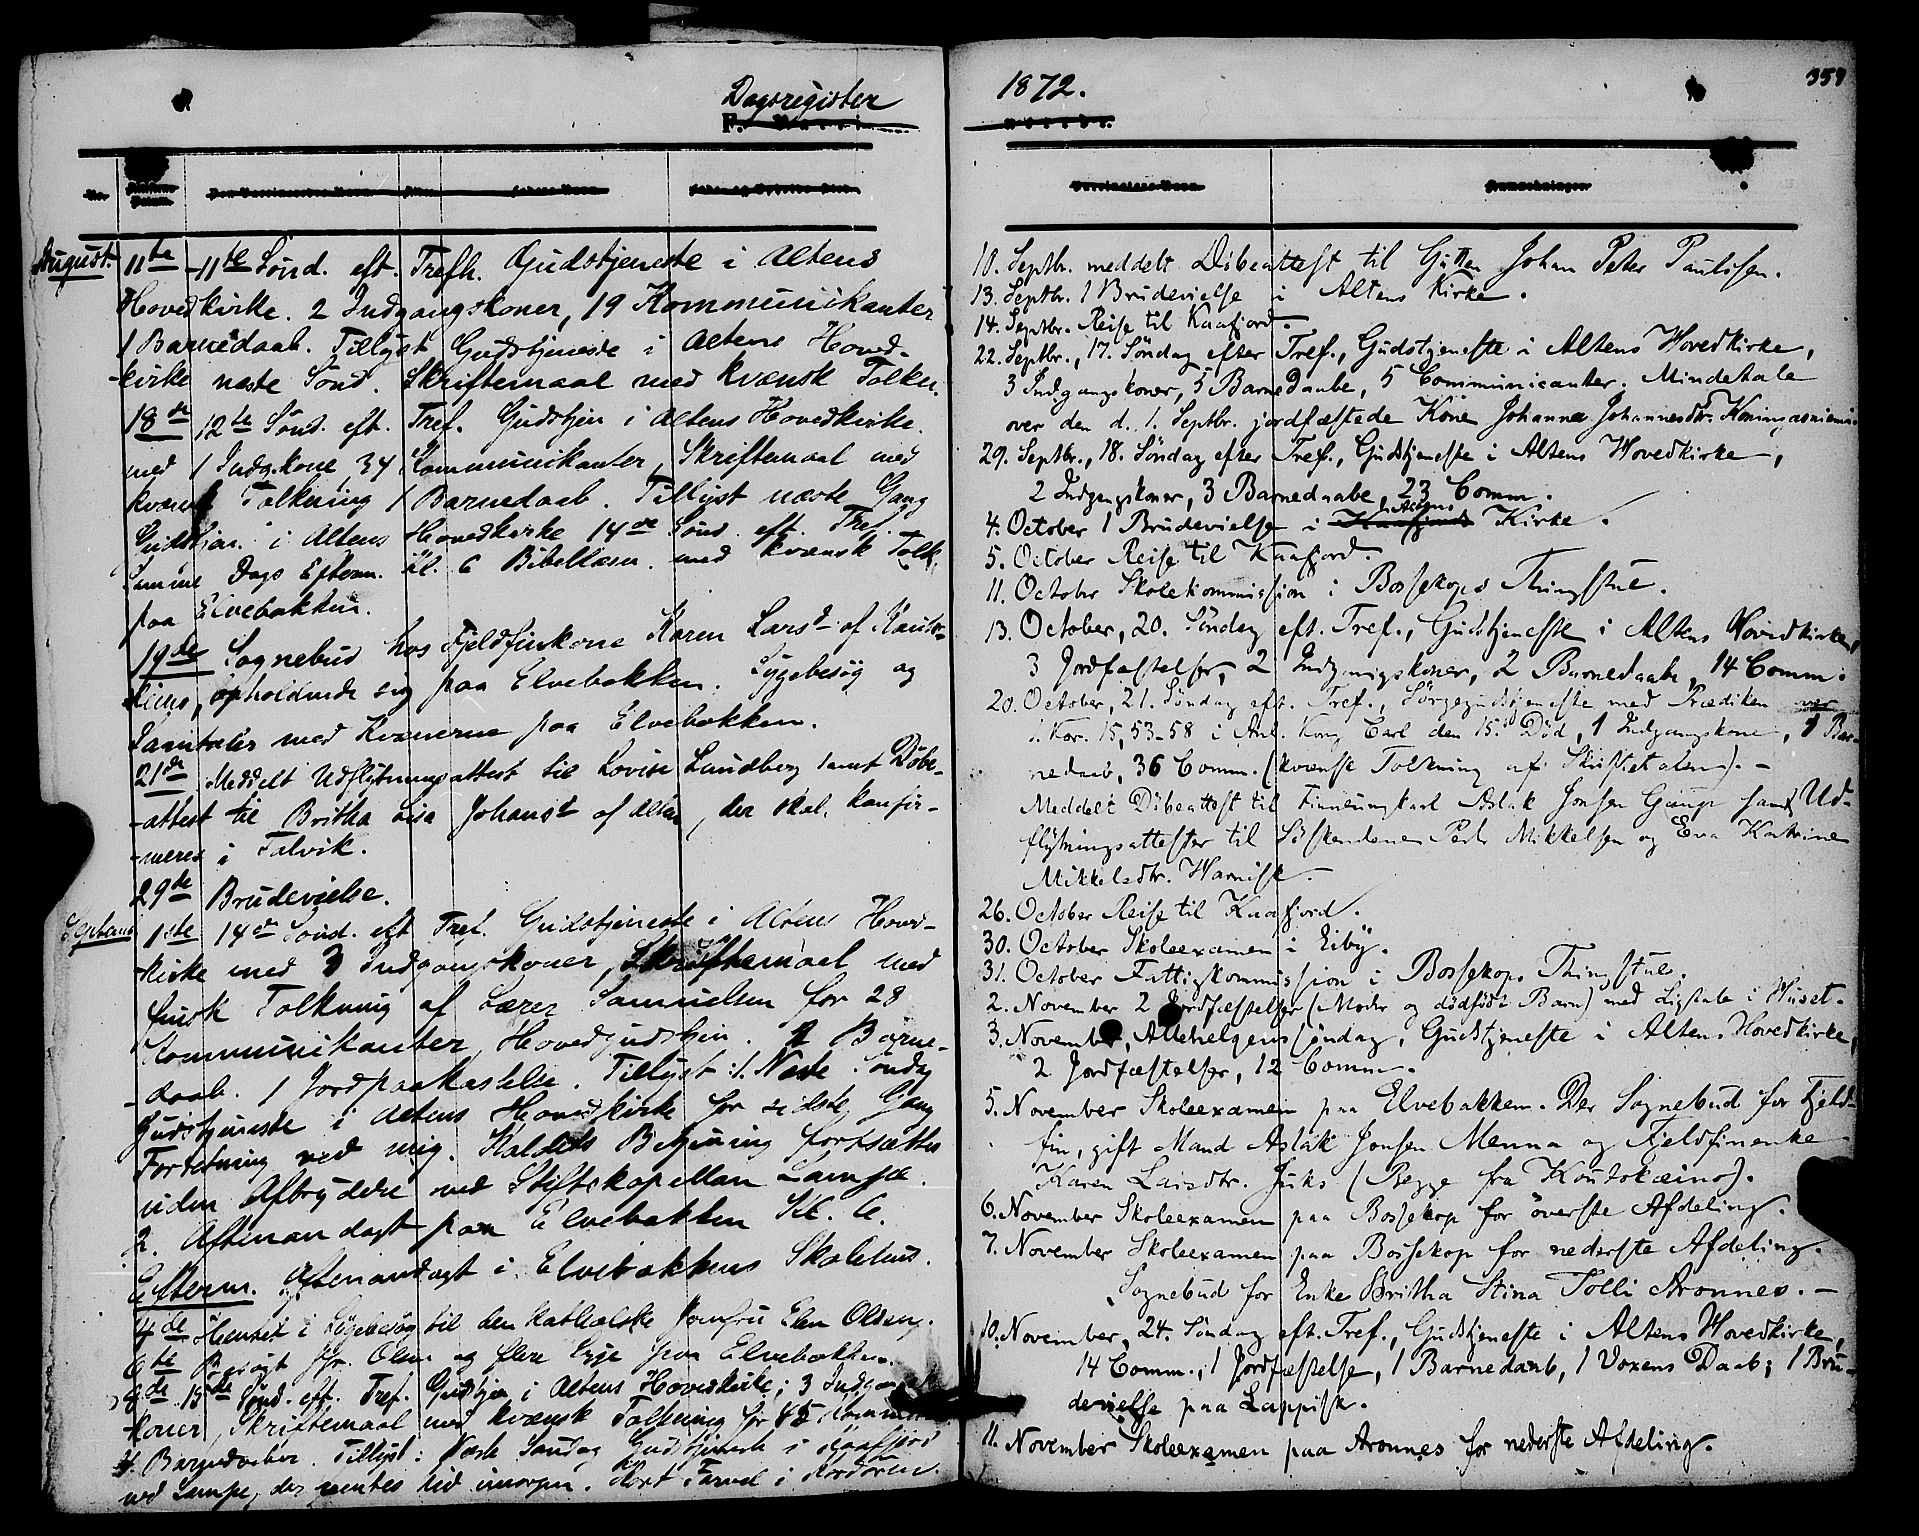 Dagsregister
1872.
359
August. 11te 11te Sønd. eft. Trefh. Gudstjeneste i Altens
Hovedkirke. 2 Indgangskoner, 19 Kommunikanter
1 Barnedaab. Tillyst Gudstjeneste i Altens Hoved-
-kirke næste Sønd. Skriftemaal med kvænsk Tolkn.
18de 12te Sønd. eft. Tref. Gudstjen i Altens Hovedkirke.
med 1 Indg.kone, 34 Kommunikanter, Skriftemaal med
kvænsk Tolkning 1 Barnedaab. Tillyst næste Gang
Gudstjen. i Altens Hovedkirke 14de Sønd. eft. Tref.
Samme Dags Efterm. Kl. 6 Bibellæsn. med kvænsk Tolk.
paa Elvebakken.
19de Sognebud hos Fjeldfinkone Karen Larsd. af Kauto-
keino, opholdende sig paa Elvebakken. Sygebesøg og
Samtaler med Kvænerne paa Elvebakken.
21de Meddelt Udflytningsattest til Lovise Lundberg samt Døbe-
-attest til Britha Lisa Johansd. af Alten, der skal konfir-
-meres i Talvik.
29de Brudevielse.
Septemb. 1ste 14de Sønd. eft Tref. Gudstjeneste i Altens Hoved-
-kirke med 3 Indgangskoner, Skriftemaal med
finsk Tolkning af Lærer Samuelsen for 28
Kommunikanter, Hovedgudstjen. 2 Barne-
-daab. 1 Jordpaakastelse. Tillyst: 1. Næste Søndag
Gudstjeneste i Altens Hovedkirke for sidste Gang
Forretning ved mig. Kaldets Betjening fortsættes
uden Afbrydelse ved Stiftskapellan Lampe.
2. Aftenandagt paa Elvebakken Kl. 6.
Efterm. Aftenandagt i Elvebakkens Skolehus.
4de Hentet i Sygebesøg til den katholske Jomfru Elen Olsen.
6te Besøgt Jfr. Olsen og flere Syge paa Elvebakken.
8de 15de Sønd. eft. Tref. Gudstjen i Altens Hovedkirke; 3 Indgangs-
-koner, Skriftemaal med kvænsk Tolkning for 45 Kommuni
4 Barnedaaber. Tillyst: Næste Søndag Gudstjeneste i Kaafjord
ved Lampe, der ventes hid imorgen. Kort Farvel i Kordøren.
10. Septbr. meddelt Døbeattest til Gutten Johan Peter Paulssen.
13. Septbr. 1 Brudevielse i Altens Kirke.
14. Septbr. Reise til Kaafjord.
22. Septbr., 17. Søndag efter Tref., Gudstjeneste i Altens Hovedkirke,
3 Indgangskoner, 5 BarneDaabe, 5 Communicanter. Mindetale
over den d. 1. Septbr. jordfæstede Kone Johanna Johannesdtr.
29. Septbr., 18. Søndag efter Tref., Gudstjeneste i Altens Hovedkirke,
2 Indgangskoner, 3 Barnedaabe, 23 Comm.
4. October 1 Brudevielse i Kaafjords Altens Kirke.
5. October Reise til Kaafjord.
11. October Skolekommission i Bossekops Thingstue.
13. October, 20. Søndag eft. Tref., Gudstjeneste i Altens Hovedkirke,
3 Jordfæstelser, 2 Indgangskoner, 2 Barnedaabe, 14 Comm.
20. October, 21. Søndag eft. Tref., Sørgegudstjeneste med Prædiken over
1. Kor. 15, 53-58 i Anl. Kong Carl den 15des Død, 1 Indgangskone, 1 Bar-
nedaab, 36 Comm. (kvænsk Tolkning af Skriftetalen). -
Meddelt Døbeattest til Finneungkarl Aslak Jonsen Gaup samt Ud-
flytningsattester til Söskendene Peder Mikkelsen og Eva Katrine
Mikkelsdtr. Warnisk.
26. October Reise til Kaafjord.
30. October Skoleexamen i Eiby.
31. October Fattigkommission i Bossekops Thingstue.
2. November 2 Jordfæstelser (Moder og dødfødt Barn) med Ligtale i Huset.
3. November, Allehelgenssøndag, Gudstjeneste i Altens Hovedkirke,
2 Jordfæstelser, 12 Comm.
5. November Skoleexamen paa Elvebakken. Der Sognebud for Fjeld-
fin, gift Mand Aslak Jonsen Menna og Fjeldfinenke
Karen Larsdtr. Juks (Begge fra Koutokæino).
6. November Skoleexamen paa Bossekop for øverste Afdeling.
7. November Skoleexamen paa Bossekop for nederste Afdeling.
Sognebud for Enke Britha Stina Tolli Aronnes. -
10. November, 24. Søndag eft. Tref., Gudstjeneste i Altens Hovedkirke,
14 Comm., 1 Jordfæstelse, 1 Barnedaab, 1 Voxens Daab; 1 Bru-
devielse paa Lappisk.
11. November Skoleexamen paa Aronnes for nederste Afdeling.